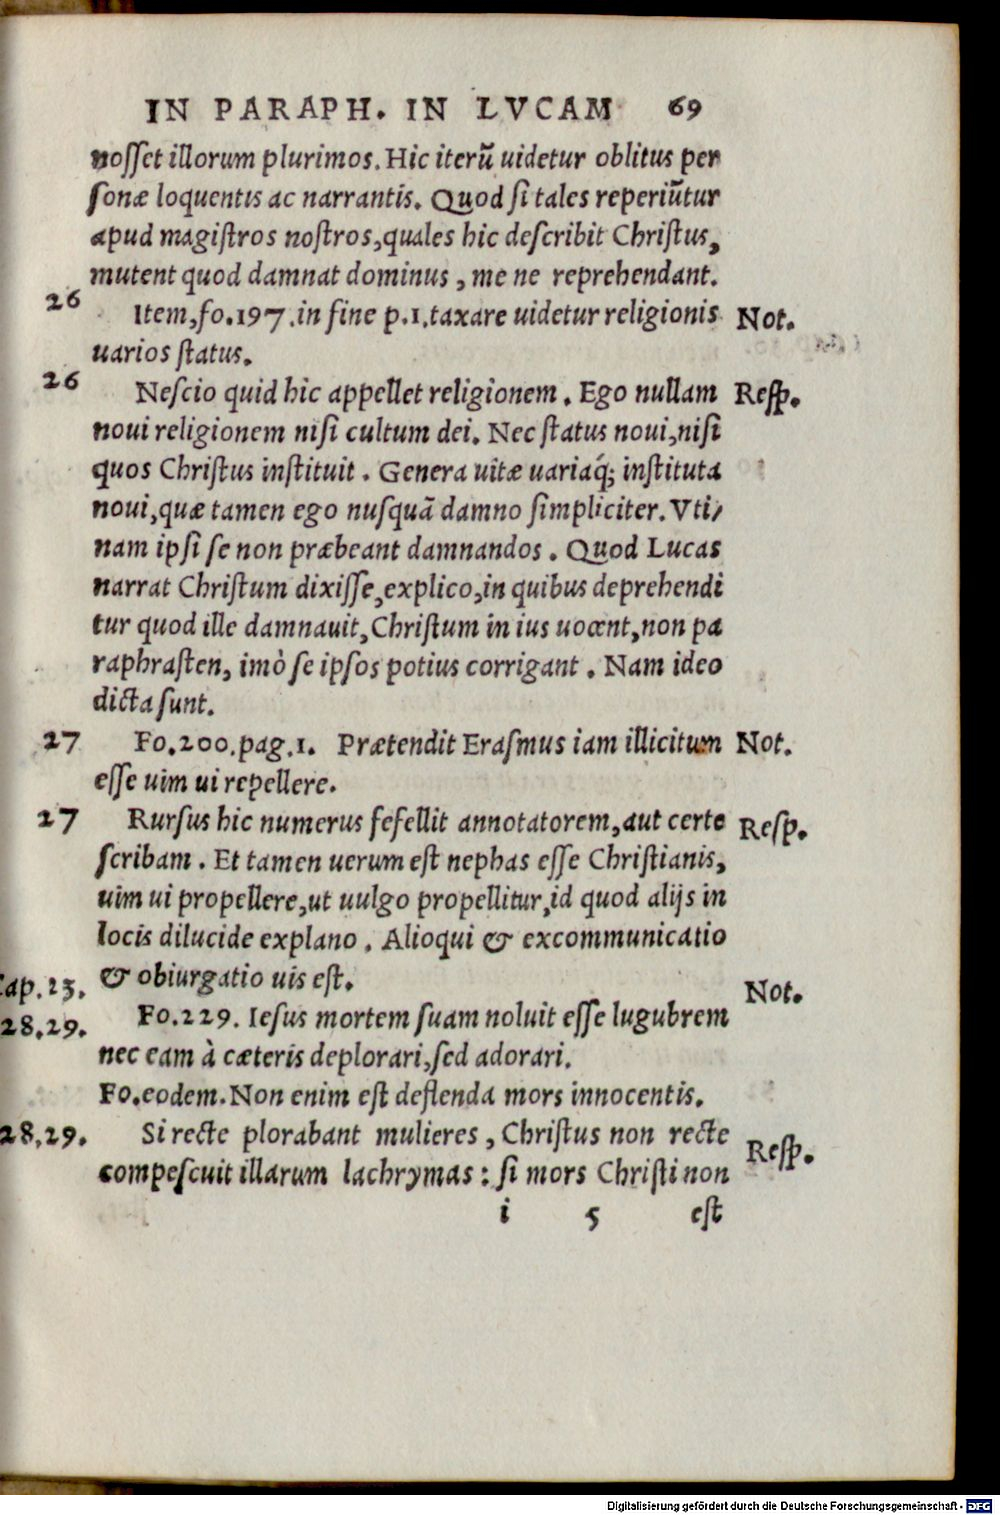 IN PARAPH. IN LVCAM 69
nosset illorum plurimos. Hic iterũ uidetur oblitus per
sonæ loquentis ac narrantis. Quod si tales reperiũtur
apud magistros nostros, quales hic describit Christus,
mutent quod damnat dominus, me ne reprehendant.
26 Item, fo. 197. in fine p. 1. taxare uidetur religionis Not.
uarios status.
26 Nescio quid hic appellet religionem. Ego nullam Resp.
noui religionem nisi cultum dei. Nec status noui, nisi
quos Christus instituit. Genera uitæ uariaq́; instituta
noui, quæ tamen ego nusquã damno simpliciter. Vti/
nam ipsi se non præbeant damnandos. Quod Lucas
narrat Christum dixisse, explico, in quibus deprehendi
tur quod ille damnauit, Christum in ius uocent, non pa
raphrasten, imò se ipsos potius corrigant. Nam ideo
dicta sunt.
27 Fo. 200. pag. 1. Prætendit Erasmus iam illicitum Not.
esse uim ui repellere.
27 Rursus hic numerus fefellit annotatorem, aut certe Resp.
scribam. Et tamen uerum est nephas esse Christianis,
uim ui propellere, ut uulgo propellitur, id quod alijs in
locis dilucide explano. Alioqui & excommunicatio
Cap. 23. & obiurgatio uis est.
28. 29. Fo. 229. Iesus mortem suam noluit esse lugubrem Not.
nec eam à cæteris deplorari, sed adorari.
Fo. eodem. Non enim est deflenda mors innocentis.
28. 29. Si recte plorabant mulieres, Christus non recte Resp.
compescuit illarum lachrymas: si mors Christi non
i 5 est
Digitalisierung gefördert durch die Deutsche Forschungsgemeinschaft - DFG